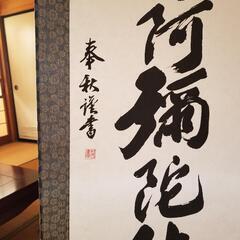 阿彌陀
奉秋謹書